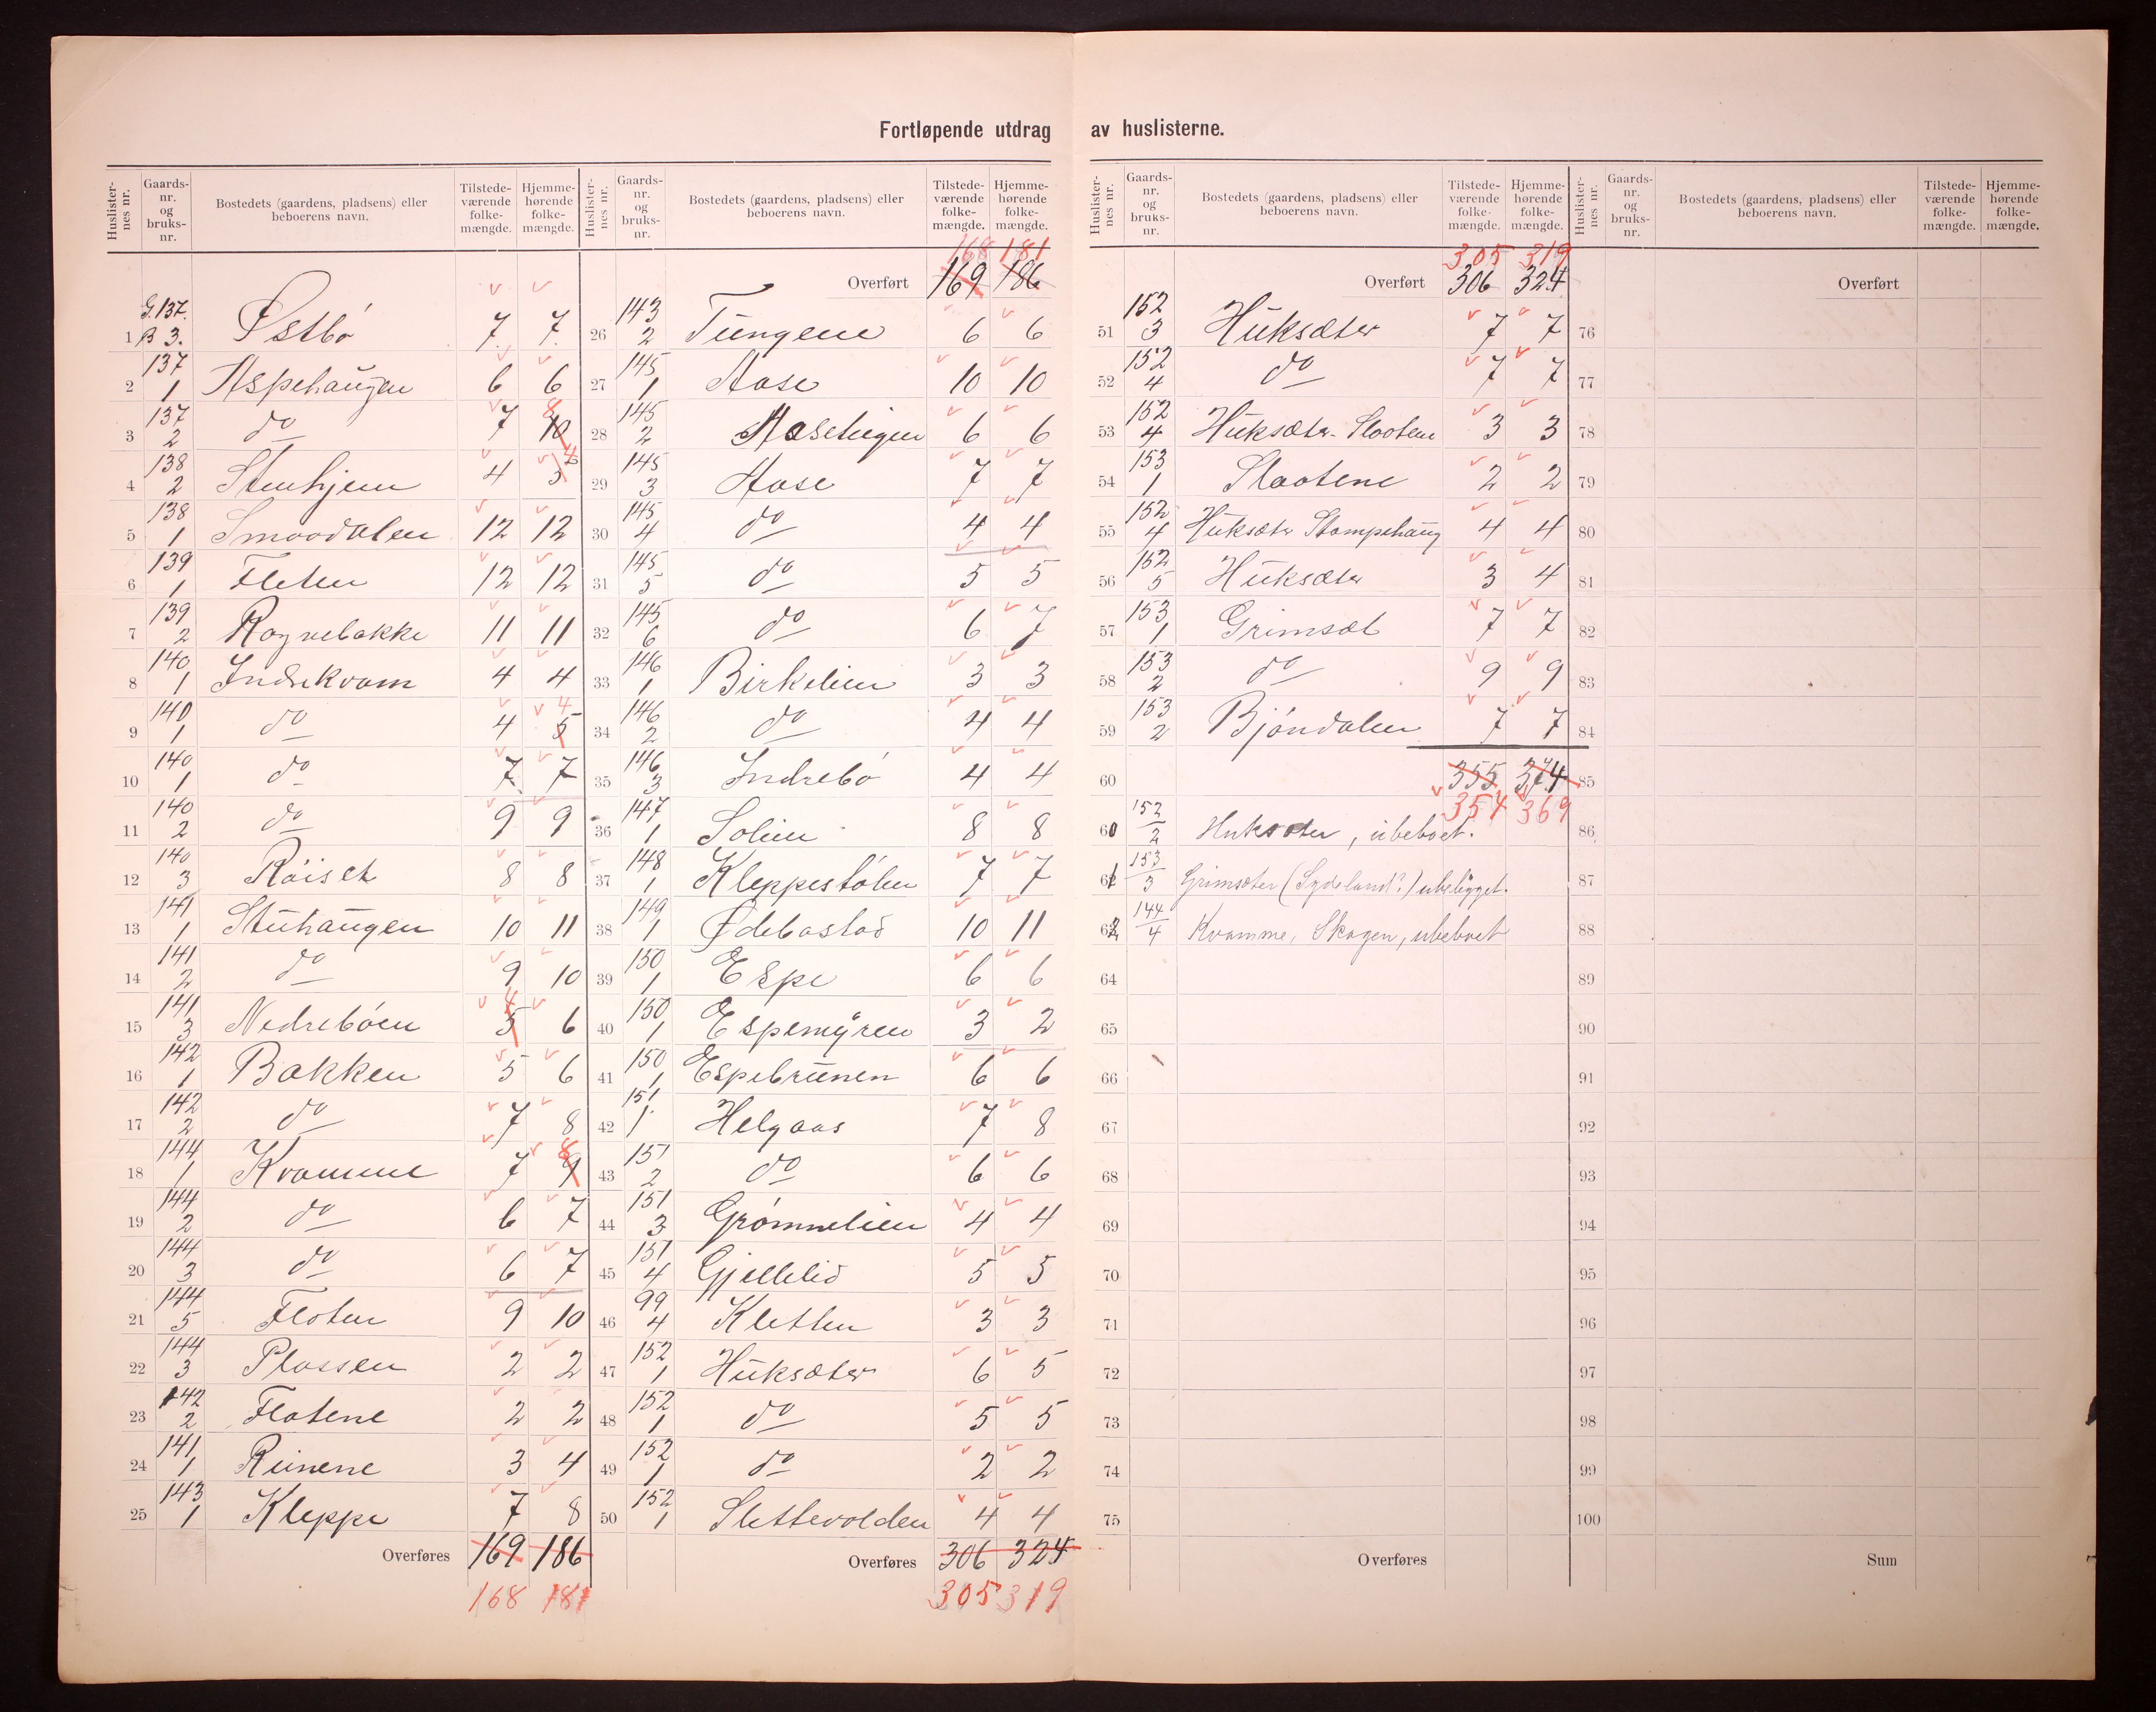 Fortløpende utdrag av huslisterne.
Huslister-nes nr. | Gaards-nr. og bruks-nr. | Bostedets (gaardens, pladsens) eller beboerens navn. | Tilstede-værende folke-mængde. | Hjemme-hørende folke-mængde.
1 G. 137. B 3. Østbø 7 7
2 137 1 Aspehaugen 6 6
3 137 2 do 7 10 8
4 138 2 Stenhjem 4 5 4
5 138 1 Smaadalen 12 12
6 139 1 Fleten 12 12
7 139 2 Rognebakke 11 11
8 140 1 Indrekvam 4 4
9 140 1 do 4 5 4
10 140 1 do 7 7
11 140 2 do 9 9
12 140 3 Røiset 8 8
13 141 1 Stuhaugen 10 11
14 141 2 do 9 10
15 141 3 Nedrebøen 5 4 6
16 142 1 Bakken 5 6
17 142 2 do 7 8
18 144 1 Kvamme 7 9 8
19 144 2 do 6 7
20 144 3 do 6 7
21 144 5 Floten 9 10
22 144 3 Plassen 2 2
23 142 2 Flatene 2 2
24 141 1 Reinene 3 4
25 143 1 Kleppe 7 8
Overføres 169 186
168 181
Huslister-nes nr. | Gaards-nr. og bruks-nr. | Bostedets (gaardens, pladsens) eller beboerens navn. | Tilstede-værende folke-mængde. | Hjemme-hørende folke-mængde.
168 181
Overført 169 186
26 143 2 Tungene 6 6
27 145 1 Aase 10 10
28 145 2 Aaseteigen 6 6
29 145 3 Aase 7 7
30 145 4 do 4 4
31 145 5 do 5 5
32 145 6 do 6 7
33 146 1 Birkelien 3 3
34 146 2 do 4 4
35 146 3 Indrebø 4 4
36 147 1 Solien 8 8
37 148 1 Kleppestølen 7 7
38 149 1 Ødebastad 10 11
39 150 1 Espe 6 6
40 150 1 Espemyren 3 2
41 150 1 Espebrunen 6 6
42 151 1 Helgaas 7 8
43 151 2 do 6 6
44 151 3 Grømmelien 4 4
45 151 4 Gjellelid 5 5
46 99 4 Kletten 3 3
47 152 1 Huksæter 6 5
48 152 1 do 5 5
49 152 1 do 2 2
50 152 1 Slettevolden 4 4
Overføres 306 324
305 319
Huslister-nes nr. | Gaards-nr. og bruks-nr. | Bostedets (gaardens, pladsens) eller beboerens navn. | Tilstede-værende folke-mængde. | Hjemme-hørende folke-mængde.
305 319
Overført 306 324
51 152 3 Huksæter 7 7
52 152 4 do 7 7
53 152 4 Huksæter-Slaatene 3 3
54 153 1 Slaatene 2 2
55 152 4 Huksæter Stampehaug 4 4
56 152 5 Huksæter 3 4
57 153 1 Grimsæt 7 7
58 153 2 do 9 9
59 153 2 Bjøndalen 7 7
60 355 374
354 369
60 152/2 Huksæter, ubeboet.
61 153/3 Grimsæter (Sydeland?) ubebygget.
62 144/4 Kvamme, Skogen, ubeboet
64
65
66
67
68
69
70
71
72
73
74
75
Overføres
Huslister-nes nr. | Gaards-nr. og bruks-nr. | Bostedets (gaardens, pladsens) eller beboerens navn. | Tilstede-værende folke-mængde. | Hjemme-hørende folke-mængde.
Overført
76
77
78
79
80
81
82
83
84
85
86
87
88
89
90
91
92
93
94
95
96
97
98
99
100
Sum